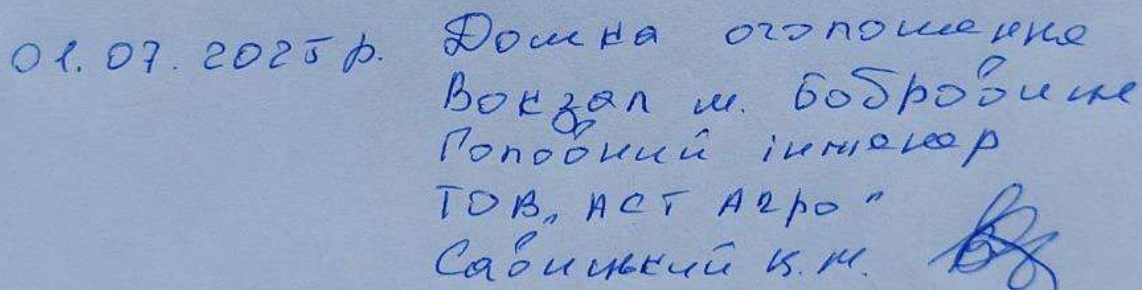 01.07.2025 р. Дошка оголошення
Вокзал м. Бобровиця
Головний інженер
ТОВ „АСТ Агро"
Савицький К.М.